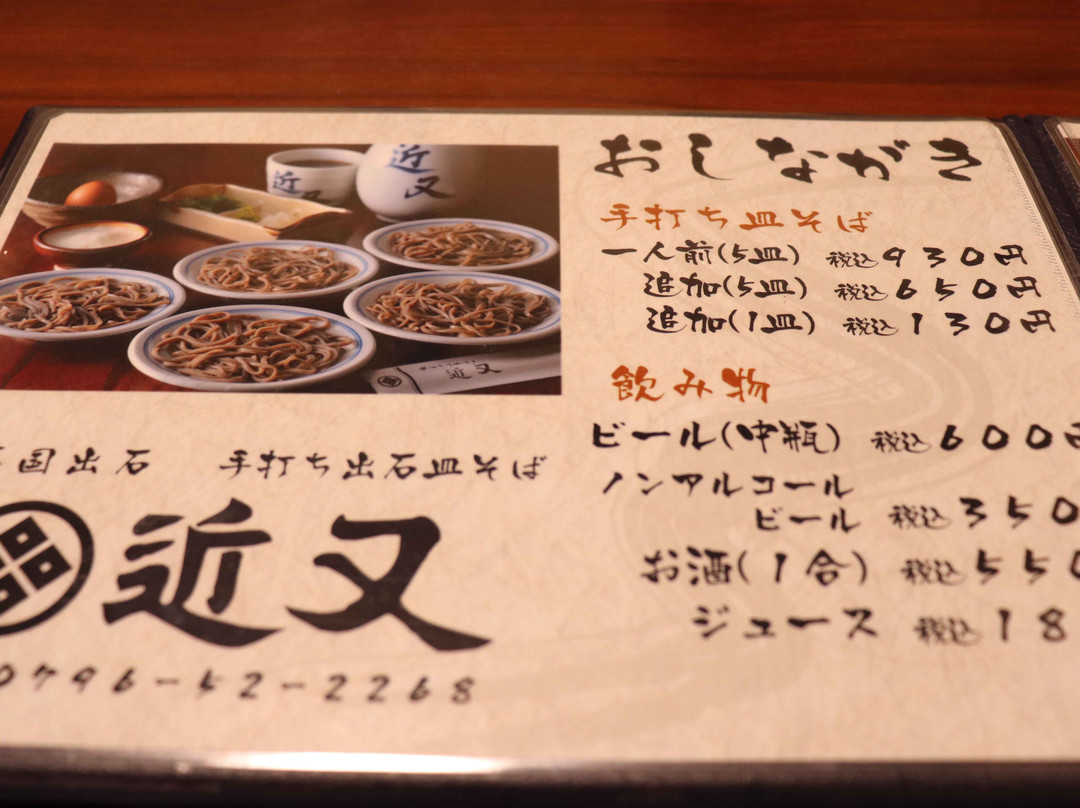 おしながき
手打ち皿そば
一人前(5皿) 税込930円
追加(5皿) 税込650円
追加(1皿) 税込130円
飲み物
ビール(中瓶) 税込600円
ノンアルコール
ビール 税込350
お酒(1合) 税込550
ジュース 税込18
近又
近又
近又
国出石 手打ち出石皿そば
近又
0796-52-2268